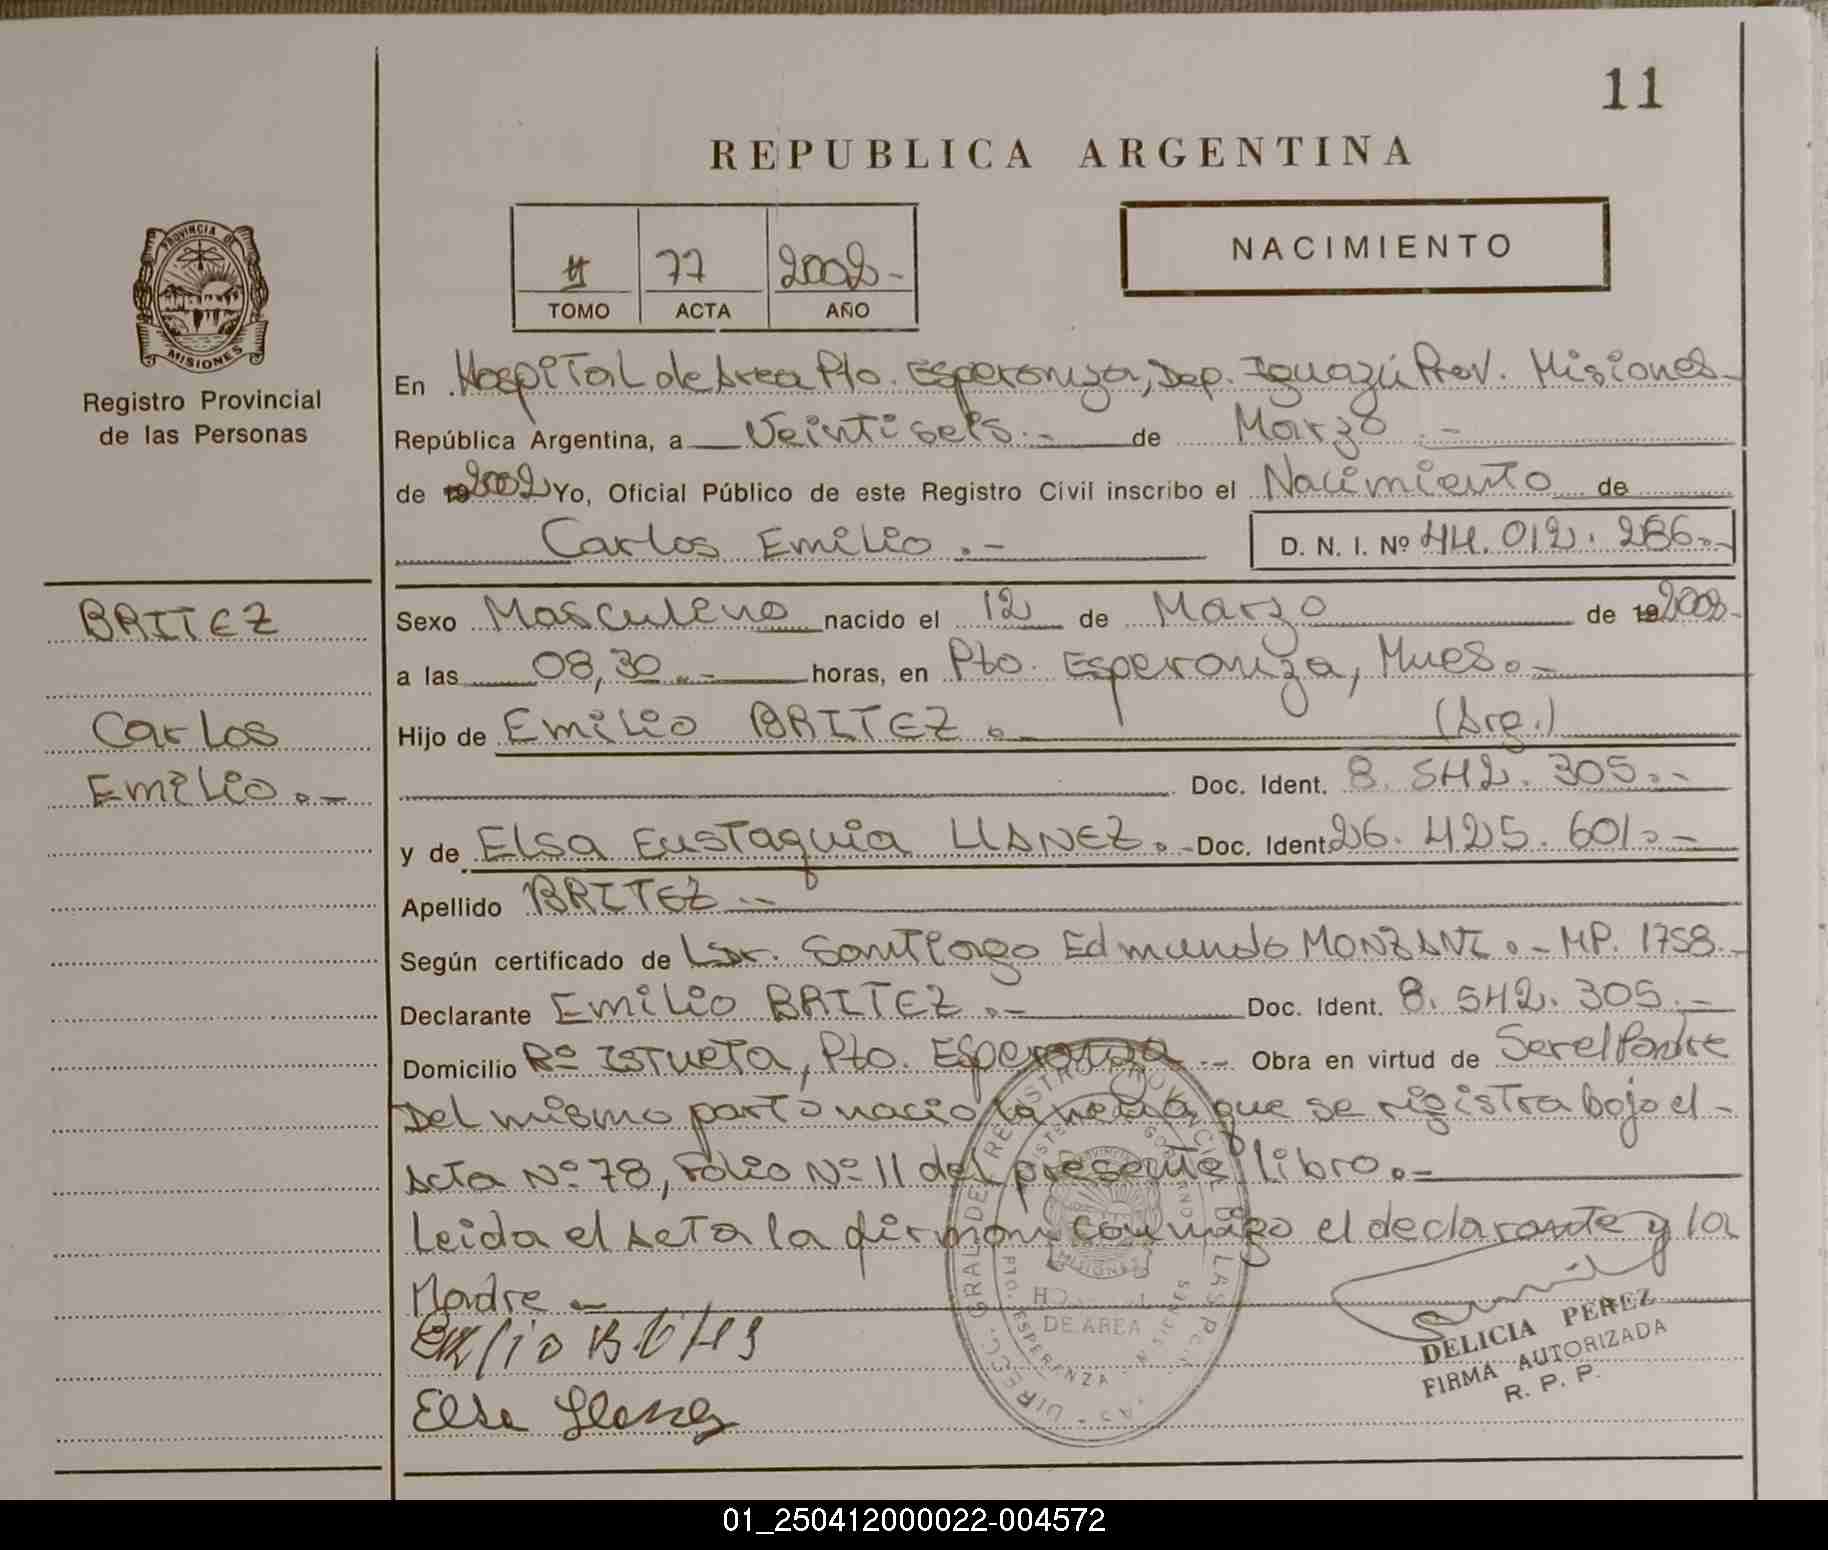 11
REPUBLICA ARGENTINA
77 2002-
TOMO ACTA AÑO
NACIMIENTO
PROVINCIA DE
MISIONES
Registro Provincial
de las Personas
En Hospital de Area Pto. Esperanza, Dep. Iguazú Prov. Misiones-
República Argentina, a Veintiseis.- de Marzo.-
de 19 2002 Yo, Oficial Público de este Registro Civil inscribo el Nacimiento de
Carlos Emilio.- D. N. I. Nº 44.012.286.-
BRITEZ
Carlos
Emilio.-
Sexo Masculino nacido el 12 de Marzo de 19 2002-
a las 08,30.- horas, en Pto. Esperanza, Mnes.-
Hijo de Emilio BRITEZ.- (Arg.)
Doc. Ident. 8.542.305.-
y de Elsa Eustaquia LLANEZ.- Doc. Ident. 26.425.601.-
Apellido BRITEZ.-
Según certificado de Dr. Santiago Edmundo MONZANI.- MP. 1758.-
Declarante Emilio BRITEZ.- Doc. Ident. 8.542.305.-
Domicilio Bº Istueta, Pto. Esperanza.- Obra en virtud de Ser el Padre
Del mismo parto nacio la nena que se registra bajo el-
Acta Nº 78, Folio Nº 11 del presente libro.-
Leida el Acta la firman conmigo el declarante y la
Madre.-
Emilio Britez
Elsa Llanez
DIRECC. GRAL. DE REGISTRO PROVINCIAL DE LAS
MISIONES
DE AREA
PTO. ESPERANZA
DELICIA PEREZ
FIRMA AUTORIZADA
R. P. P.
01_250412000022-004572